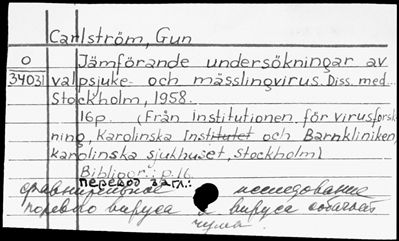 Carlström, Gun
O Jämförande undersökningar av
34031 valpsjuke- och mässlingvirus. Diss. med.
Stockholm, 1958.
16p. (Från Institutionen för virusforsk-
ning, Karolinska Institutet och Barnkliniken,
Karolinska sjukhuset, Stockholm)
Bibliogr.: p. 16
перевод загл.:
сравнительное исследование
коревого вируса и вируса собачьей
чумы.